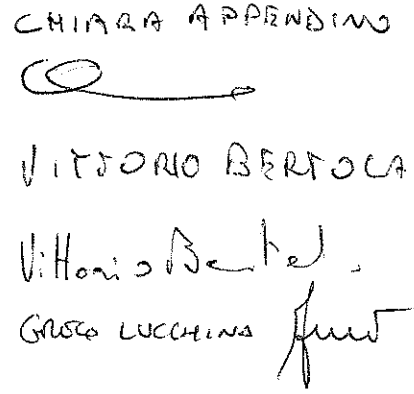 CHIARA APPENDINO
VITTORIO BERTOLA
Vittorio Bertol.
GRECO LUCCHINA